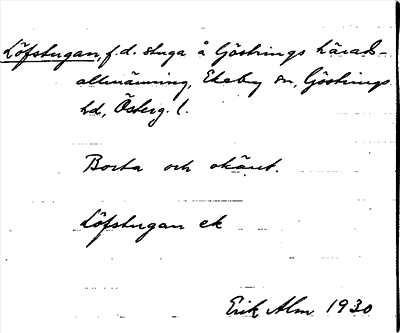 Löfstugan, f.d. stuga å Göstrings härads-
allmänning, Ekeby sn, Göstrings
hd, Österg. l.
Borta och okänt.
Löfstugan ek
Erik Alm 1930